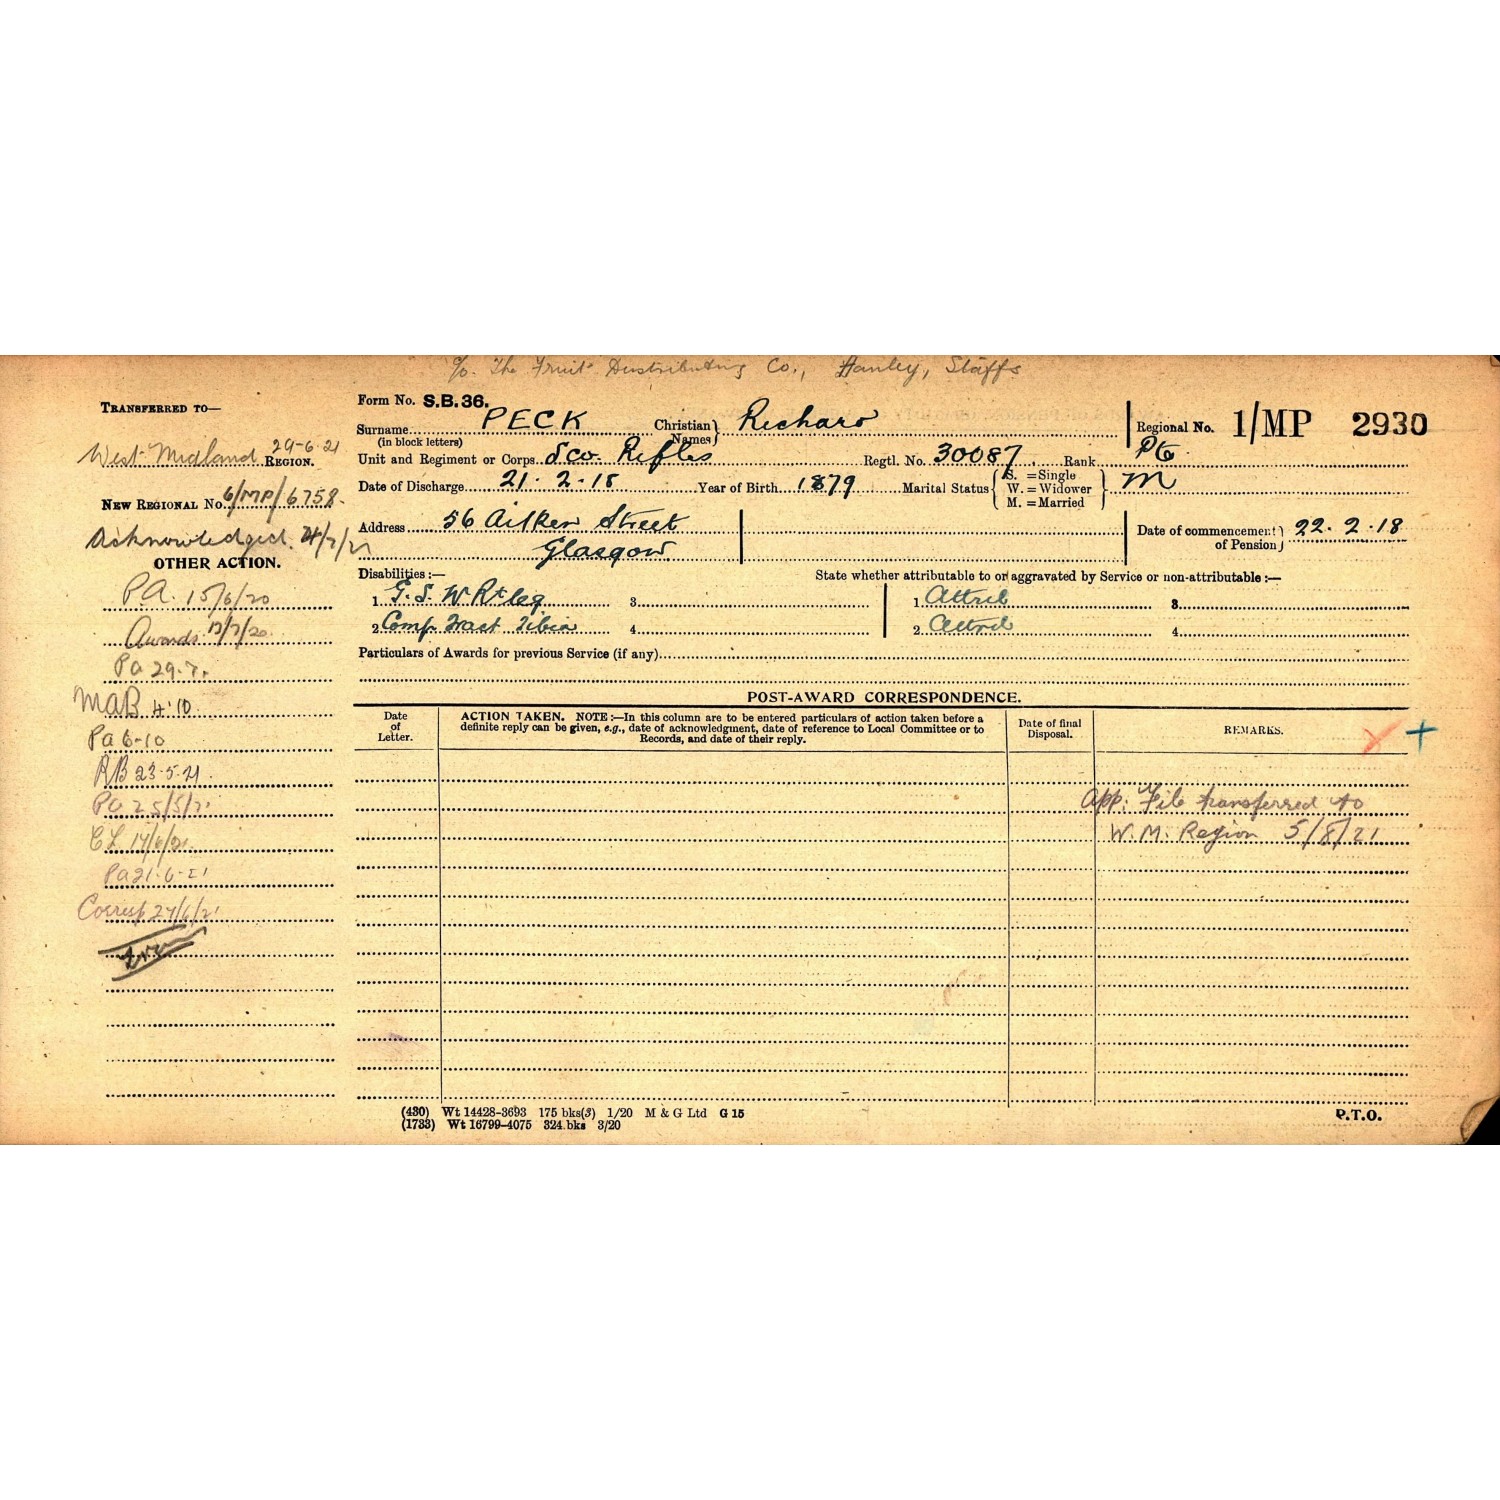 c/o. The Fruit Distributing Co., Hanley, Staffs
TRANSFERRED TO—
West Midland 29-6-21
REGION.
NEW REGIONAL No 6/MP/6758.
Acknowledged.
OTHER ACTION.
P.A. 15/6/20
Awards 12/7/20
Pa 29.7.
MAB 4.10.
Pa 6-10
RB 23.5.21.
Pa 25/5/21
CL 17/6/21
Pa 21.6.21
Corresp 27/6/21
Form No. S.B.36.
Surname PECK Christian Names Richard Regional No. 1/MP 2930
(in block letters)
Unit and Regiment or Corps Sco. Rifles Regtl. No. 30087 Rank Pte
Date of Discharge 21. 2. 18 Year of Birth 1879 Marital Status S. =Single W. =Widower M. =Married M
Address 56 Aitken Street
Glasgow
Date of commencement of Pension 22. 2. 18
Disabilities:— State whether attributable to or aggravated by Service or non-attributable:—
1. G. S. W Rt leg 3. 1. Attrib 3.
2. Comp Fract Tibia 4. 2. Attrib 4.
Particulars of Awards for previous Service (if any)
POST-AWARD CORRESPONDENCE.
Date of Letter.
ACTION TAKEN. NOTE:—In this column are to be entered particulars of action taken before a
definite reply can be given, e.g., date of acknowledgment, date of reference to Local Committee or to
Records, and date of their reply.
Date of final Disposal.
REMARKS.
App: File transferred to
W.M. Region 5/8/21
(430) Wt 14428-3693 175 bks(3) 1/20 M & G Ltd G 15
(1733) Wt 16799-4075 324 bks 3/20
P.T.O.